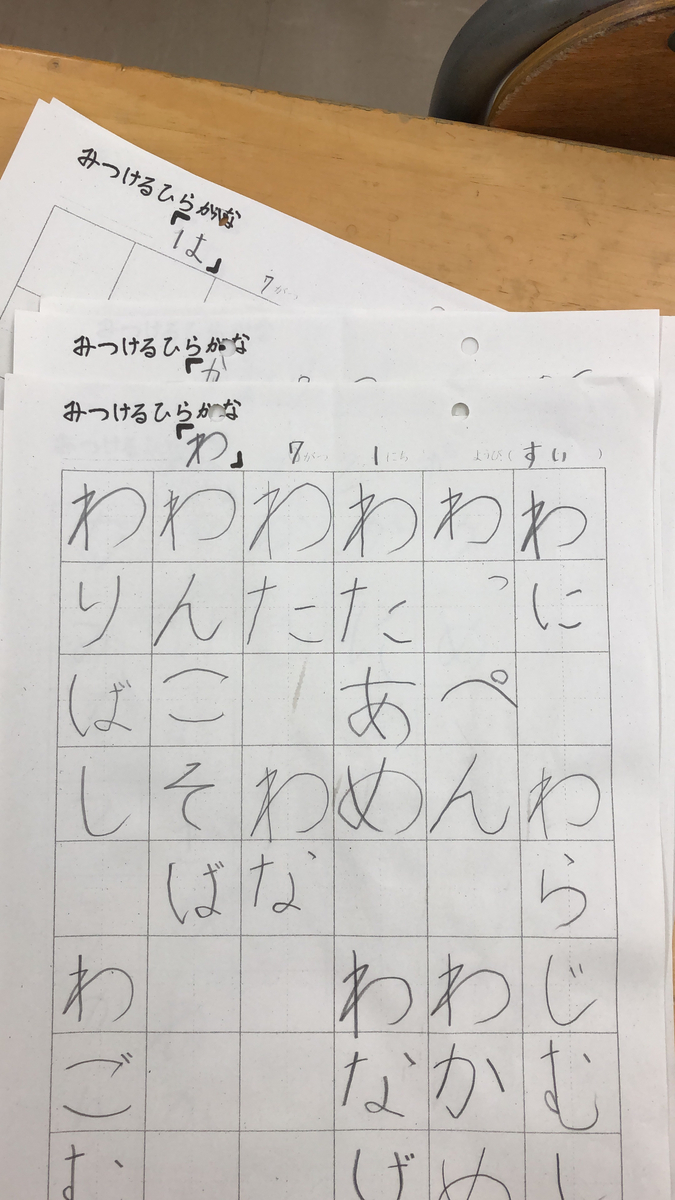 みつけるひらがな
「は」 7がつ
みつけるひらがな
「か
みつけるひらがな
「わ」 7がつ 1にち ようび(すい)
わに わらじむし
わっぺん わかめ
わたあめ わなげ
わた わな
わんこそば
わりばし わごむ